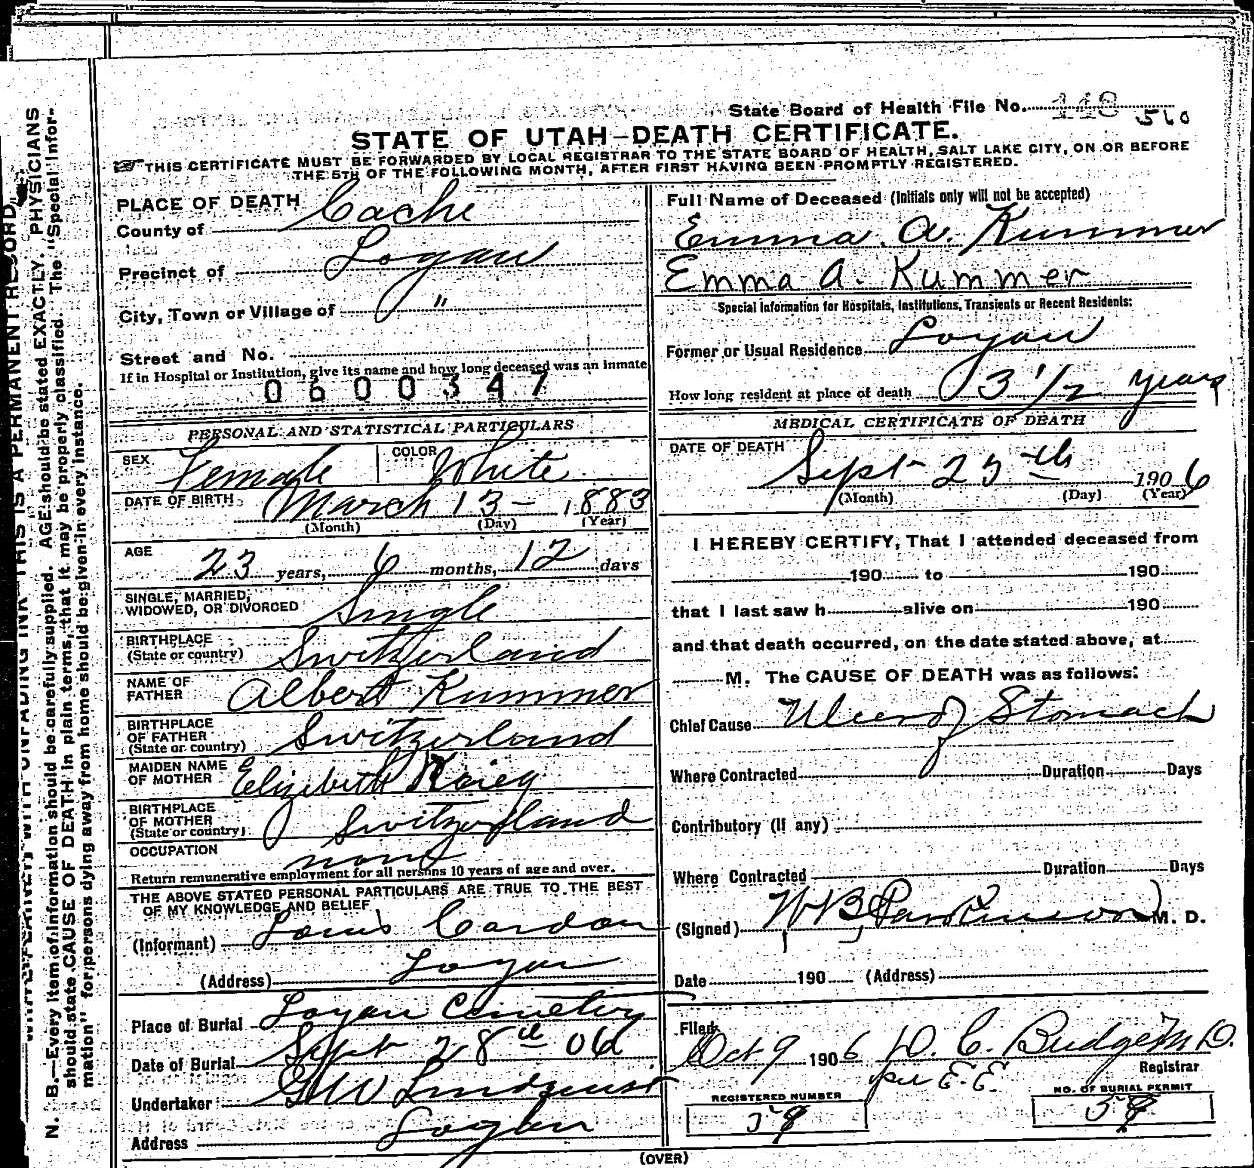 State Board of Health File No. 148 560
STATE OF UTAH—DEATH CERTIFICATE.
THIS CERTIFICATE MUST BE FORWARDED BY LOCAL REGISTRAR TO THE STATE BOARD OF HEALTH, SALT LAKE CITY, ON OR BEFORE
THE 5TH OF THE FOLLOWING MONTH, AFTER FIRST HAVING BEEN PROMPTLY REGISTERED.
PLACE OF DEATH
County of Cache
Precinct of Logan
City, Town or Village of "
Street and No.
If in Hospital or Institution, give its name and how long deceased was an inmate
0600347
PERSONAL AND STATISTICAL PARTICULARS
SEX Female COLOR White
DATE OF BIRTH March 13 - 1883
(Month) (Day) (Year)
AGE 23 years, 6 months, 12 days
SINGLE, MARRIED,
WIDOWED, OR DIVORCED Single
BIRTHPLACE
(State or country) Switzerland
NAME OF
FATHER Albert Kummer
BIRTHPLACE
OF FATHER
(State or country) Switzerland
MAIDEN NAME
OF MOTHER Elizabeth
BIRTHPLACE
OF MOTHER
(State or country) Switzerland
OCCUPATION none
Return remunerative employment for all persons 10 years of age and over.
THE ABOVE STATED PERSONAL PARTICULARS ARE TRUE TO THE BEST
OF MY KNOWLEDGE AND BELIEF
(Informant) Louis Cardon
(Address) Logan
Place of Burial Logan Cemetery
Date of Burial Sept 28th 06
Undertaker GW Lindquist
Address Logan
Full Name of Deceased (Initials only will not be accepted)
Emma. A. Kummer
Emma A. Kummer
Special Information for Hospitals, Institutions, Transients or Recent Residents:
Former or Usual Residence Logan
How long resident at place of death 3 1/2 years
MEDICAL CERTIFICATE OF DEATH
DATE OF DEATH Sept 25th 1906
(Month) (Day) (Year)
I HEREBY CERTIFY, That I attended deceased from
190 to 190
that I last saw h alive on 190
and that death occurred, on the date stated above, at
M. The CAUSE OF DEATH was as follows:
Chief Cause Ulcer of Stomach
Where Contracted Duration Days
Contributory (if any)
Where Contracted Duration Days
(Signed) W B Parkinson M. D.
Date 190 (Address)
Filed Oct 9 1906 D. C. Budge M D.
per E.E. Registrar
REGISTERED NUMBER NO. OF BURIAL PERMIT
59 59
(OVER)
THIS IS A PERMANENT RECORD.
N. B.—Every item of information should be carefully supplied. AGE should be stated EXACTLY. PHYSICIANS
should state CAUSE OF DEATH in plain terms, that it may be properly classified. The "Special Infor-
mation" for persons dying away from home should be given in every instance.